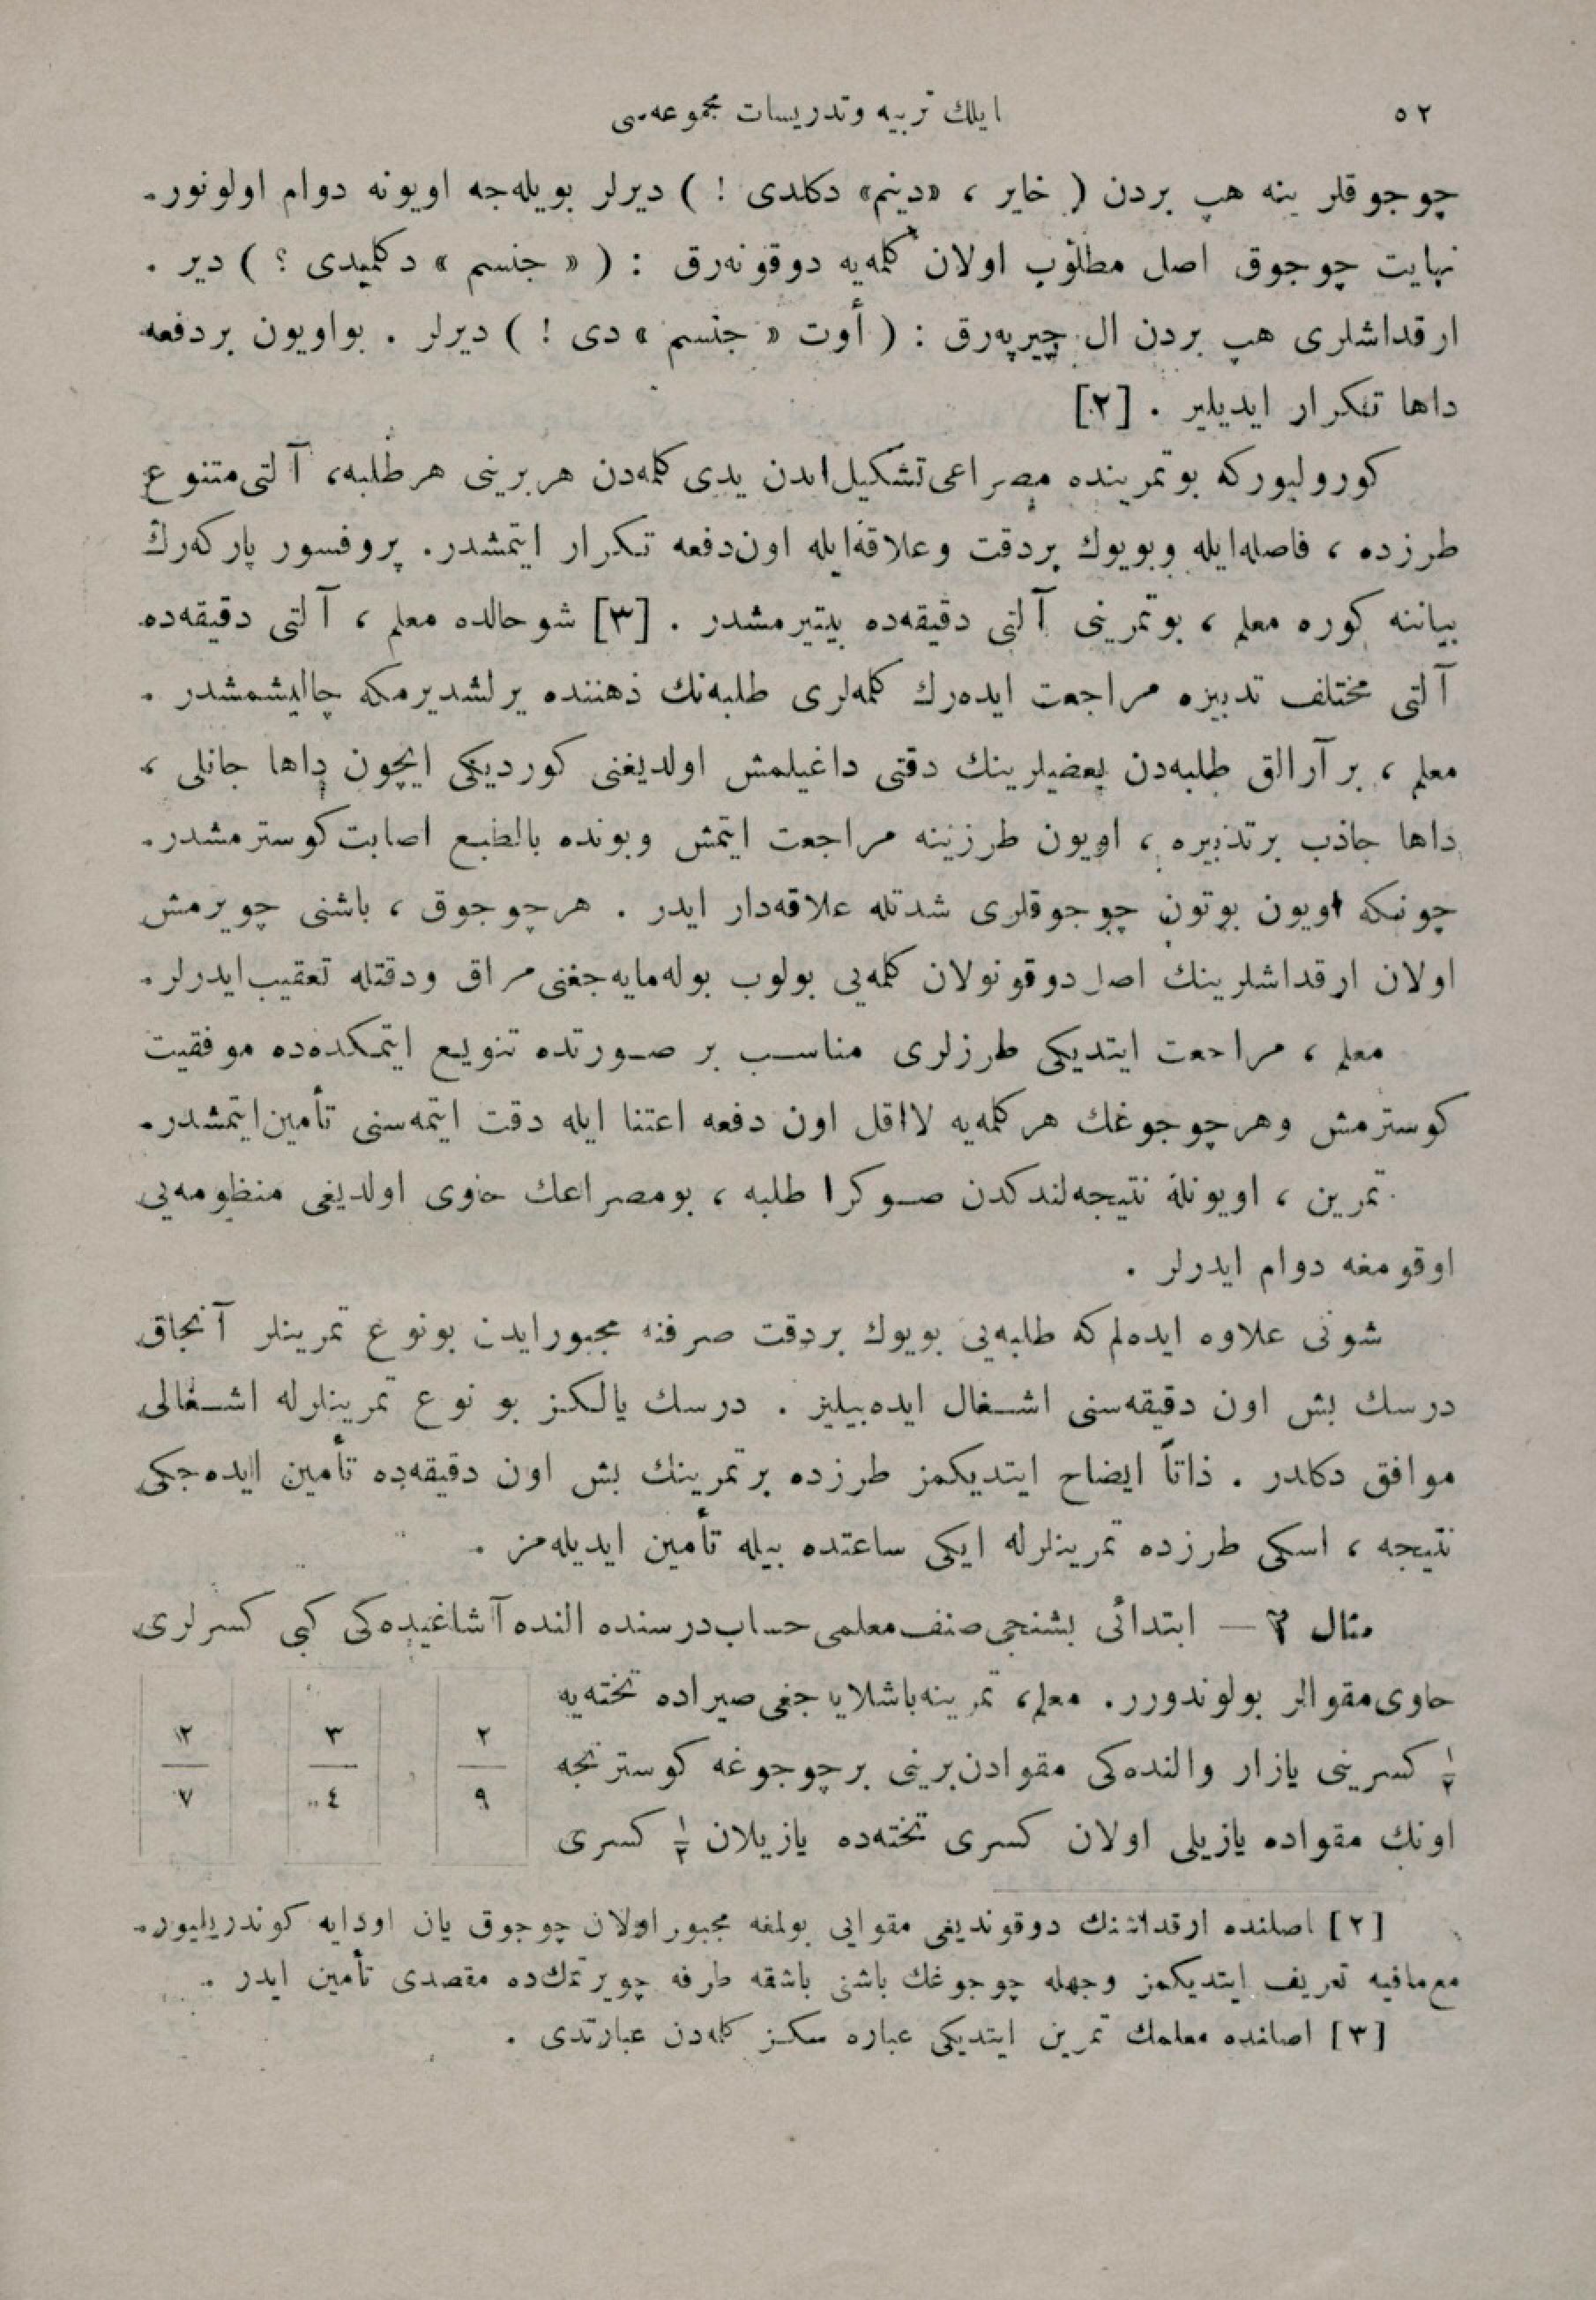 ٥٢
ایلك تربیه وتدریسات مجموعه‌سی
چوجوقلر ینه هپ بردن ( خایر ، «دینم» دكلدی ! ) دیرلر بویله‌جه اویونه دوام اولونور.
نهایت چوجوق اصل مطلوب اولان كلمه‌یه دوقونه‌رق : ( « جنسم » دكلمیدی ؟ ) دیر .
ارقداشلری هپ بردن ال چیرپه‌رق : ( أوت « جنسم » دی ! ) دیرلر . بواویون بردفعه
داها تكرار ایدیلیر . [٢]
كورولیوركه بوتمرینده مصراعی تشكیل ایدن یدی كلمه‌دن هربرینی هرطلبه، آلتی متنوع
طرزده ، فاصله‌ایله وبویوك بردقت وعلاقه‌ایله اون‌دفعه تكرار ایتمشدر. پروفسور پاركه‌رك
بیاننه كوره معلم ، بوتمرینی آلتی دقیقه‌ده بیتیرمشدر . [٣] شوحالده معلم ، آلتی دقیقه‌ده
آلتی مختلف تدبیره مراجعت ایده‌رك كلمه‌لری طلبه‌نك ذهننده یرلشدیرمكه چالیشمشدر .
معلم ، بر آرالق طلبه‌دن بعضیلرینك دقتی داغیلمش اولدیغنی كوردیكی ایچون داها جانلی ،
داها جاذب برتدبیره ، اویون طرزینه مراجعت ایتمش وبونده بالطبع اصابت كوسترمشدر.
چونكه اویون بوتون چوجوقلری شدتله علاقه‌دار ایدر . هرچوجوق ، باشنی چویرمش
اولان ارقداشلرینك اصل دوقونولان كلمه‌یی بولوب بوله‌مایه‌جغنی مراق ودقتله تعقیب ایدرلر.
معلم ، مراجعت ایتدیكی طرزلری مناسب بر صورتده تنویع ایتمكده‌ده موفقیت
كوسترمش وهرچوجوغك هركلمه‌یه لااقل اون دفعه اعتنا ایله دقت ایتمه‌سنی تأمین ایتمشدر.
تمرین ، اویونله نتیجه‌لندكدن صوكرا طلبه ، بومصراعك حاوی اولدیغی منظومه‌یی
اوقومغه دوام ایدرلر .
شونی علاوه ایده‌لم‌كه طلبه‌یی بویوك بردقت صرفنه مجبورایدن بونوع تمرینلر آنجاق
درسك بش اون دقیقه‌سنی اشغال ایده‌بیلیر . درسك یالكز بو نوع تمرینلرله اشغالی
موافق دكلدر . ذاتاً ایضاح ایتدیكمز طرزده برتمرینك بش اون دقیقه‌ده تأمین ایده‌جكی
نتیجه ، اسكی طرزده تمرینلرله ایكی ساعتده بیله تأمین ایدیله‌مز .
مثال ٢ — ابتدائی بشنجی صنف معلمی حساب‌درسنده النده آشاغیده‌كی كبی كسرلری
حاوی مقوالر بولوندورر. معلم، تمرینه باشلایاجغی صیراده تخته‌یه
١/٢ كسرینی یازار والنده‌كی مقوادن‌برینی برچوجوغه كوسترنجه
اونك مقواده یازیلی اولان كسری تخته‌ده یازیلان ١/٢ كسری
٢/٩ ٣/٤ ٢/٧
[٢] اصلنده ارقداشنك دوقوندیغی مقوایی بولمغه مجبور اولان چوجوق یان اودایه كوندریلیور.
مع‌مافیه تعریف ایتدیكمز وجهله چوجوغك باشنی باشقه طرفه چویرتمك‌ده مقصدی تأمین ایدر .
[٣] اصلنده معلمك تمرین ایتدیكی عباره سكز كله‌دن عبارتدی .